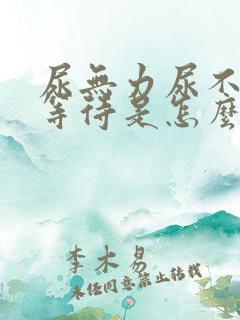 尿無力尿不
等待是怎麼
李木易
未经同意禁止转载